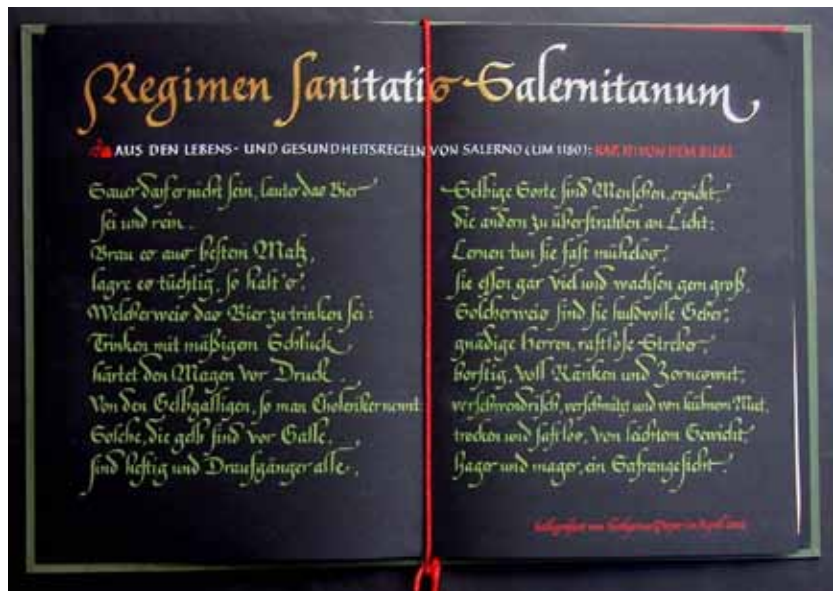 Regimen Sanitatis Salernitanum
AUS DEN LEBENS- UND GESUNDHEITSREGELN VON SALERNO (UM 1180): KAP. 17: VON DEM BIERE
Sauer darf er nicht sein, lauter das Bier
sei und rein.
Brau es aus bestem Malz,
lagre es tüchtig, so halt's.
Welcherweis das Bier zu trinken sei:
Trinken mit mäßigem Schluck
härtet den Magen vor Druck.
Von den Gelbgalligen, so man Choleriker nennt
Solche, die gelb sind vor Galle,
sind heftig und Draufgänger alle.
Selbige Sorte sind Menschen, erpicht,
die andern zu überstrahlen an Licht:
Lernen tun sie fast mühelos,
sie essen gar viel und wachsen gern groß.
Solcherweis sind sie huldvolle Geber,
gnädige Herren, rastlose Streber,
borstig, voll Ränken und Zorneswut,
verschwendrisch, verschmitzt und von kühnem Mut,
trocken und saftlos, von leichtem Gewicht,
hager und mager, ein Safrangesicht.